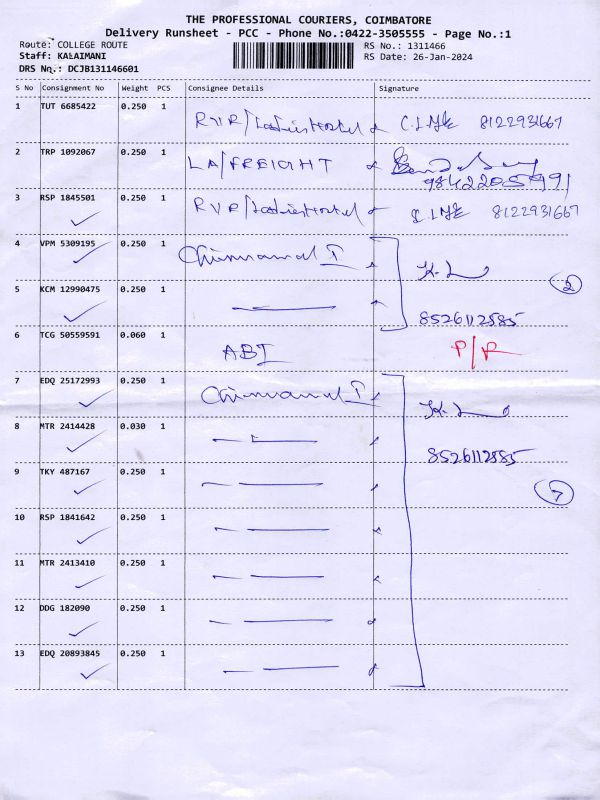 THE PROFESSIONAL COURIERS, COIMBATORE
Delivery Runsheet - PCC - Phone No.:0422-3505555 - Page No.:1
Route: COLLEGE ROUTE RS No.: 1311466
Staff: KALAIMANI RS Date: 26-Jan-2024
DRS No.: DCJB131146601
S No Consignment No Weight PCS Consignee Details Signature
1 TUT 6685422 0.250 1 8122931667
2 TRP 1092067 0.250 1 LA/FREIGHT
9842205991
3 RSP 1845501 0.250 1 8122931667
4 VPM 5309195 0.250 1 2
5 KCM 12990475 0.250 1 8526112585
6 TCG 50559591 0.060 1 ABI P/R
7 EDQ 25172993 0.250 1
8 MTR 2414428 0.030 1 8526112585
9 TKY 487167 0.250 1 7
10 RSP 1841642 0.250 1
11 MTR 2413410 0.250 1
12 DDG 182090 0.250 1
13 EDQ 20893845 0.250 1